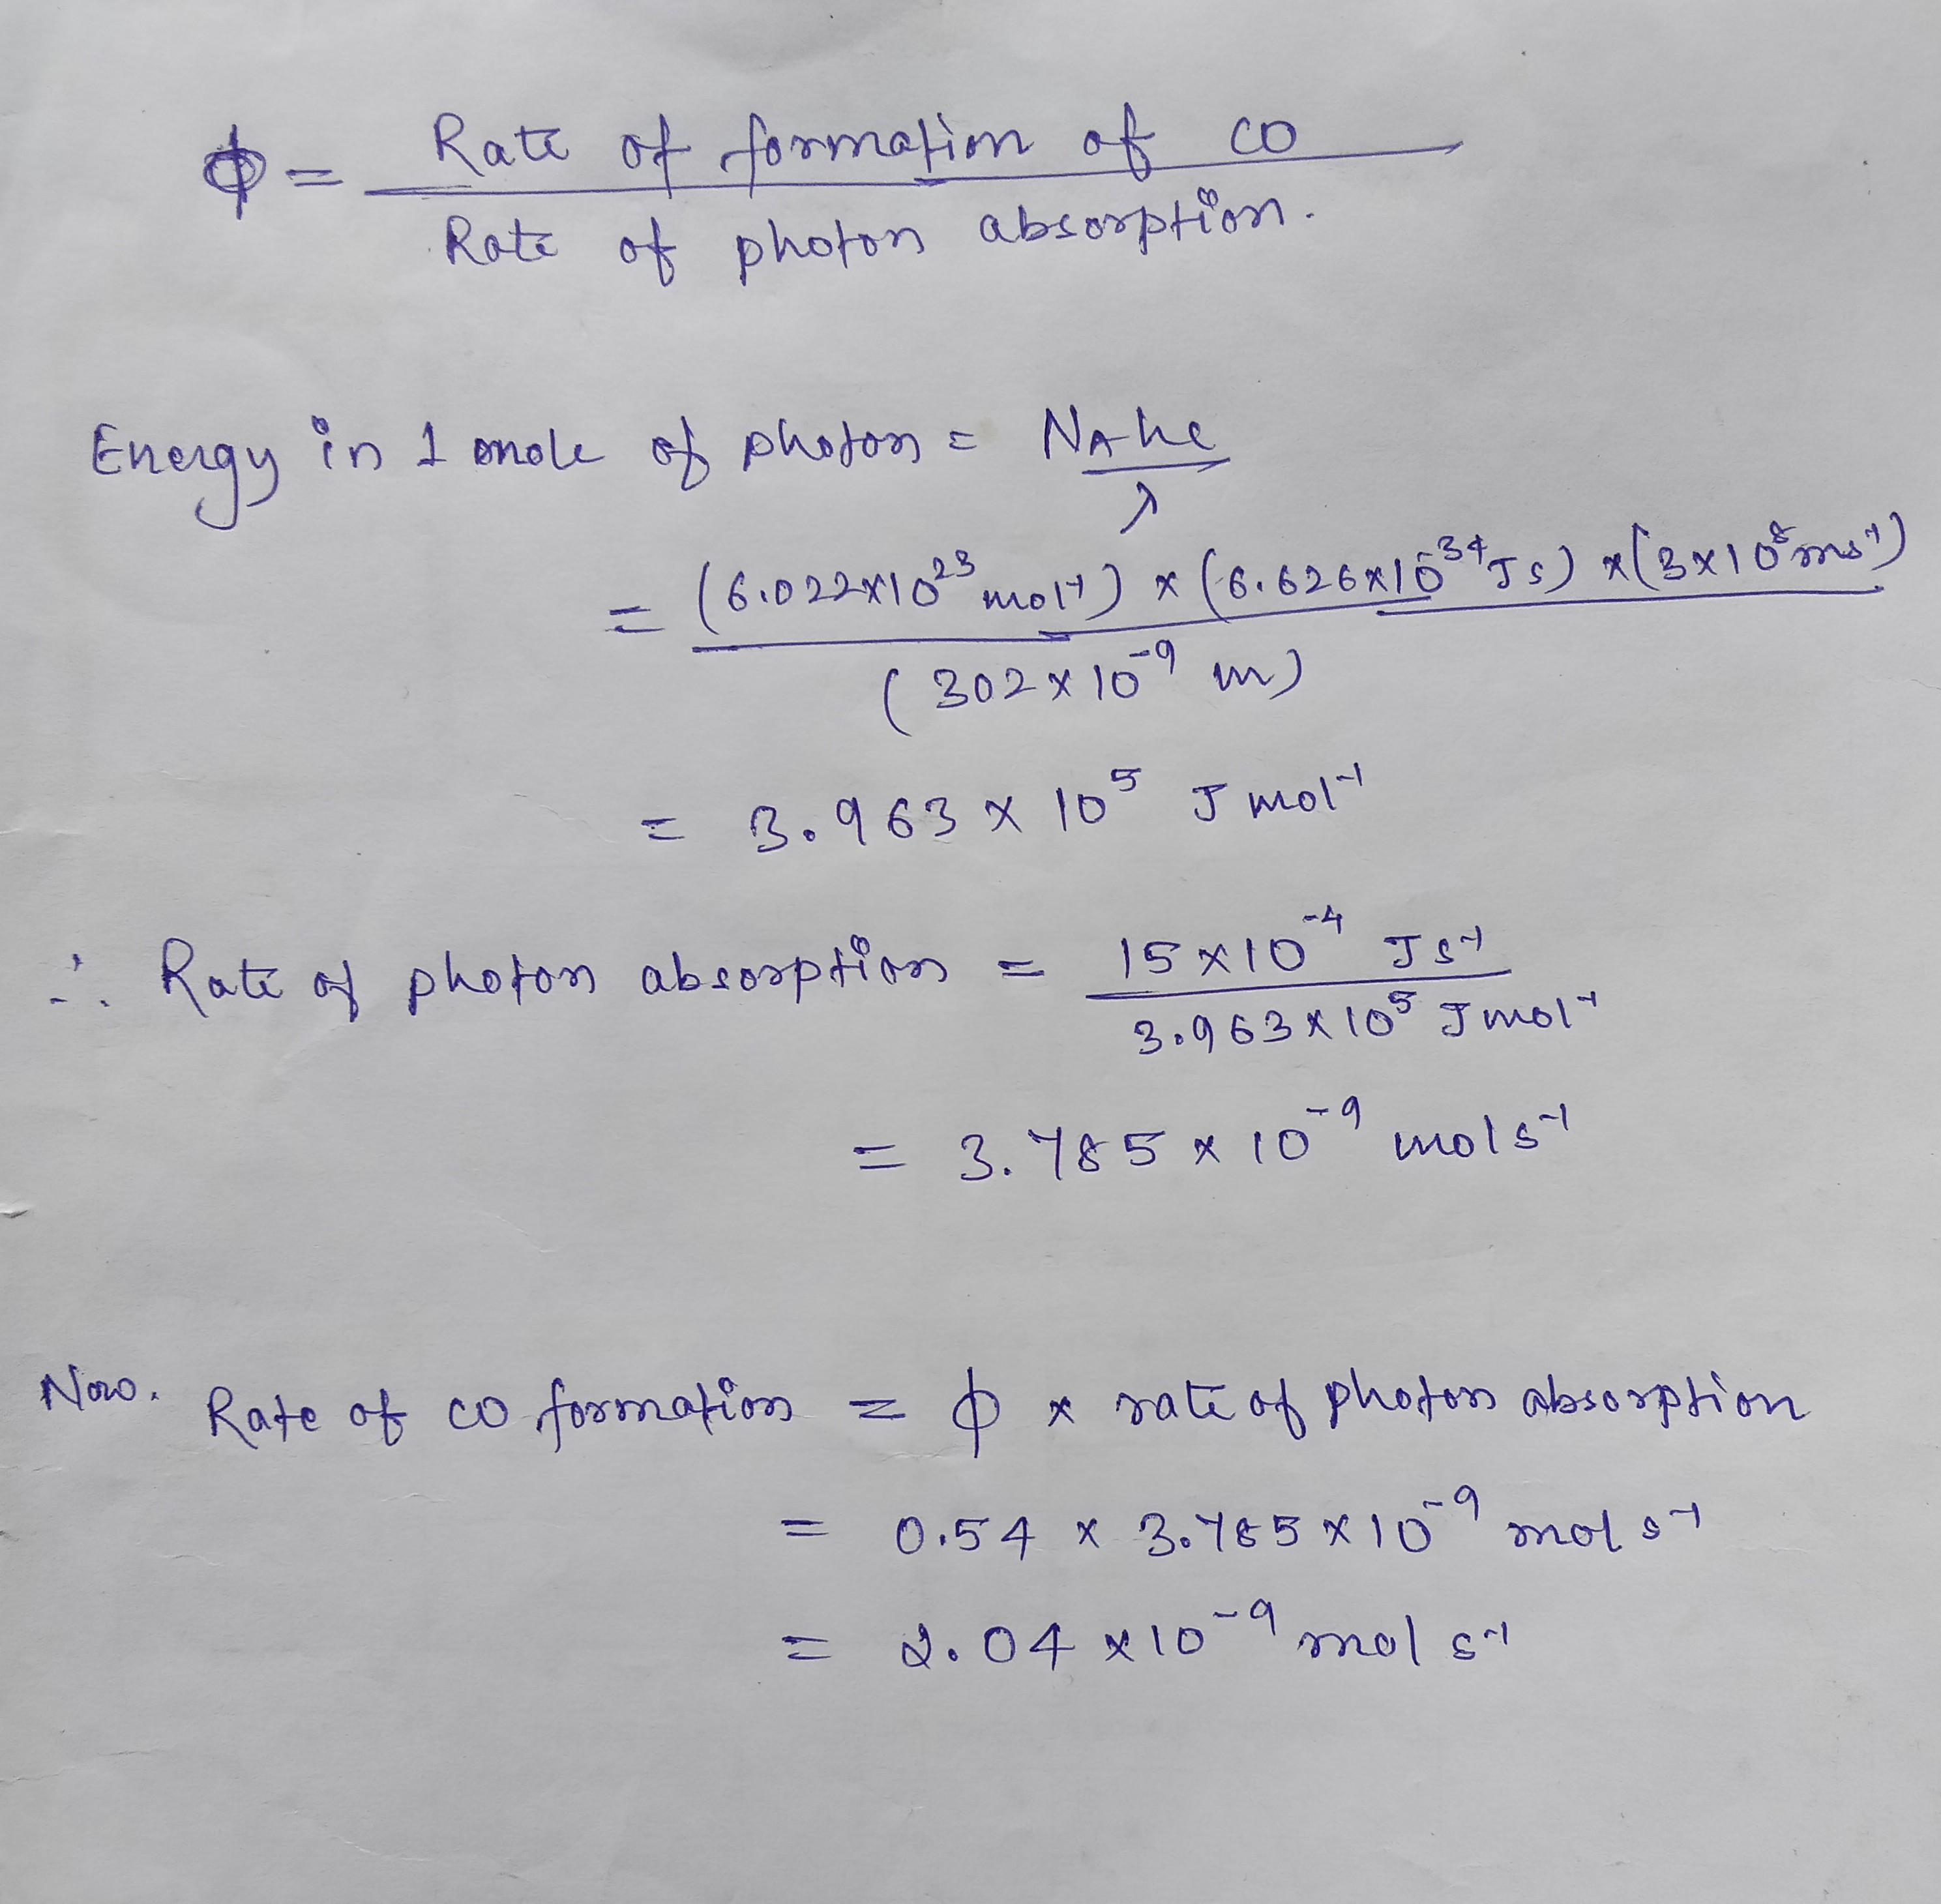 ϕ = Rate of formation of CO
Rate of photon absorption.
Energy in 1 mole of photon = NAhc
λ
= (6.022×10²³ mol⁻¹) × (6.626×10⁻³⁴ Js) × (3×10⁸ ms⁻¹)
(302×10⁻⁹ m)
= 3.963 × 10⁵ J mol⁻¹
∴ Rate of photon absorption = 15×10⁻⁴ Js⁻¹
3.963×10⁵ J mol⁻¹
= 3.785 × 10⁻⁹ mol s⁻¹
Now. Rate of CO formation = ϕ × rate of photon absorption
= 0.54 × 3.785 × 10⁻⁹ mol s⁻¹
= 2.04 × 10⁻⁹ mol s⁻¹